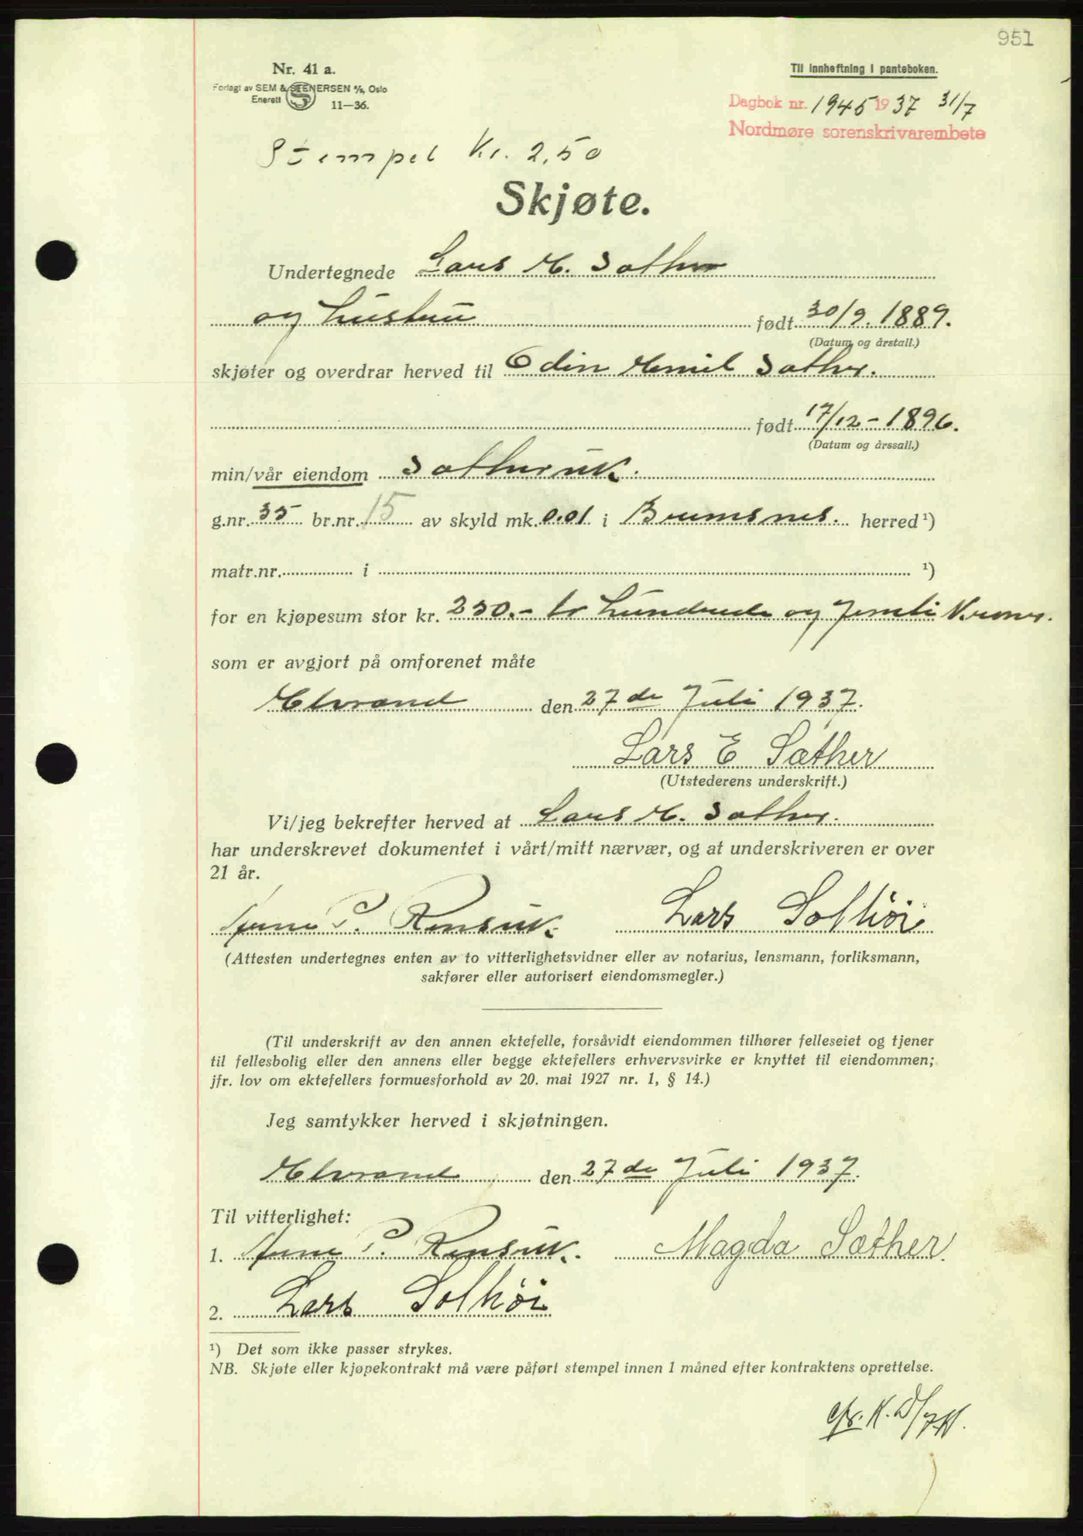 951
Nr. 41 a.
Til innheftning i panteboken.
Forlagt av SEM & STENERSEN A/S, Oslo
Enerett S 11—36.
Dagbok nr. 1945 1937 31/7
Nordmøre sorenskrivarembete
Stempel Kr. 2,50
Skjøte.
Undertegnede Lars E. Sæther
og hustru født 30/9. 1889.
(Datum og årstall.)
skjøter og overdrar herved til Odin Emil Sæther.
født 17/12 - 1896.
(Datum og årssall.)
min/vår eiendom Sæthervik.
g.nr. 35 br.nr. 15 av skyld mk. 0.01 i Bremsnes. herred ¹)
matr.nr. i ¹)
for en kjøpesum stor kr. 250.- to hundrede og femti Kroner.
som er avgjort på omforenet måte
Elvrand den 27de Juli 1937.
Lars E Sæther
(Utstederens underskrift.)
Vi/jeg bekrefter herved at Lars E. Sæther.
har underskrevet dokumentet i vårt/mitt nærvær, og at underskriveren er over
21 år.
P. Rensvik. Lars Solhøi
(Attesten undertegnes enten av to vitterlighetsvidner eller av notarius, lensmann, forliksmann,
sakfører eller autorisert eiendomsmegler.)
(Til underskrift av den annen ektefelle, forsåvidt eiendommen tilhører felleseiet og tjener
til fellesbolig eller den annens eller begge ektefellers erhvervsvirke er knyttet til eiendommen;
jfr. lov om ektefellers formuesforhold av 20. mai 1927 nr. 1, § 14.)
Jeg samtykker herved i skjøtningen.
Elvrand den 27de Juli 1937.
Til vitterlighet:
1. P. Rensvik. Magda Sæther.
2. Lars Solhøi
¹) Det som ikke passer strykes.
NB. Skjøte eller kjøpekontrakt må være påført stempel innen 1 måned efter kontraktens oprettelse.